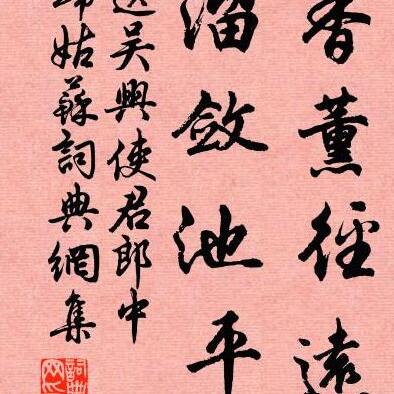 香薰徑遠
溜斂池平
送吳興使君郎中
歸姑蘇詞典網集
詞典網